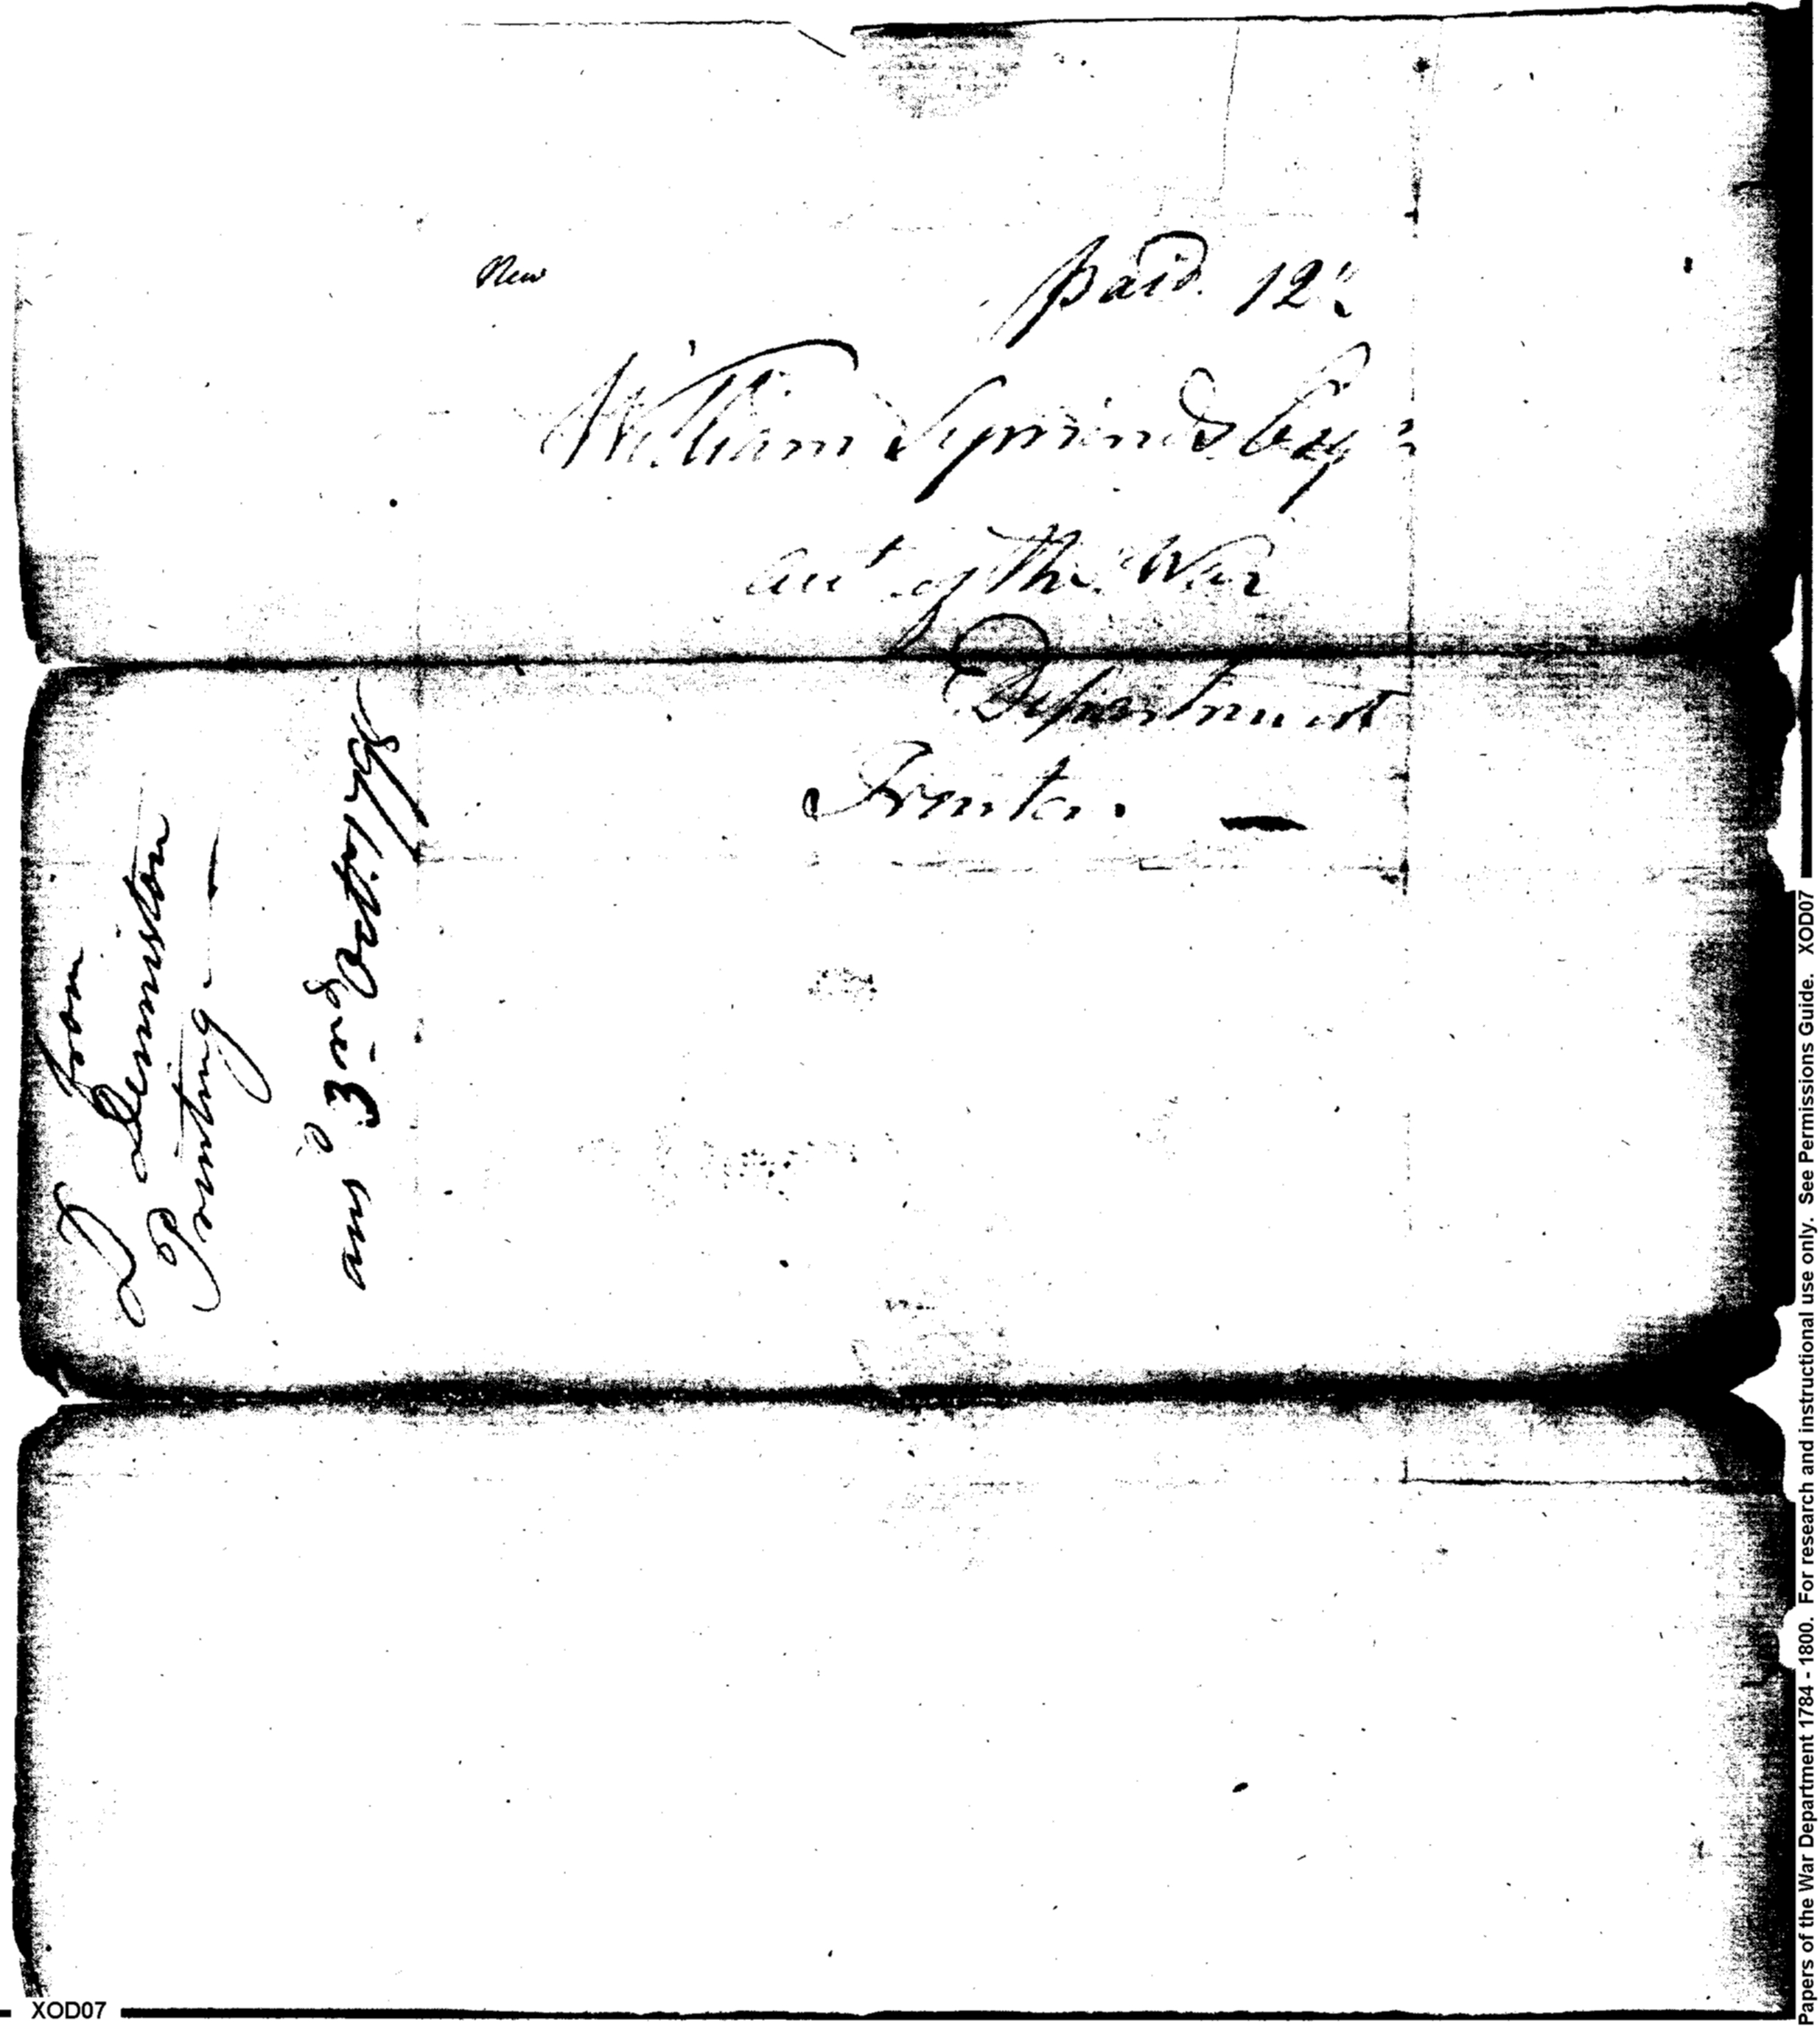 New
paid. 12 1/2
William Simmonds Esq.r
Acct of the War
Department
Trenton.
from
D Denniston
Printing -
ans.d 3rd Octob. 1799
Papers of the War Department 1784 - 1800. For research and instructional use only. See Permissions Guide. XOD07
XOD07